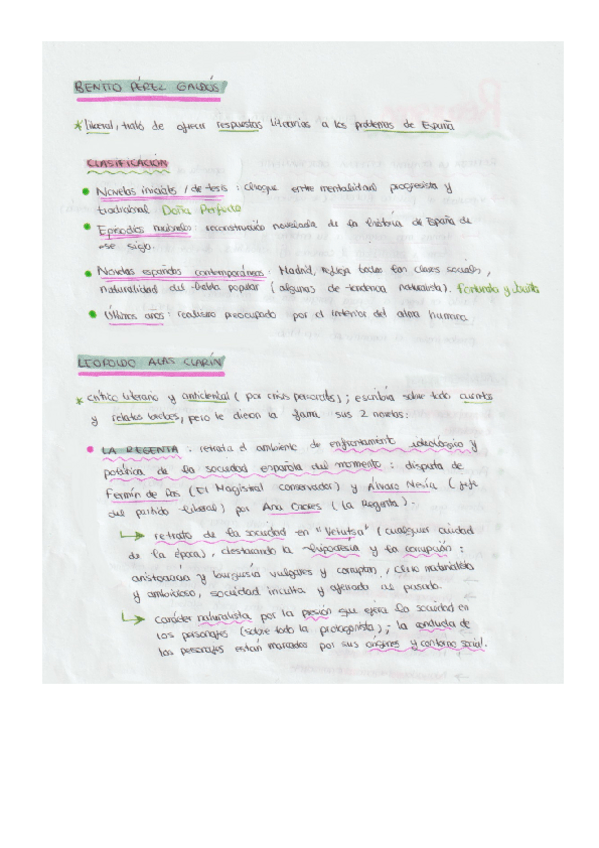 BENITO PÉREZ GALDÓS
* liberal, trató de ofrecer respuestas literarias a los problemas de España
CLASIFICACIÓN
• Novelas iniciales / de tesis : choque entre mentalidad progresista y
tradicional. Doña Perfecta
• Episodios nacionales : reconstrucción novelada de la historia de España de
ese siglo.
• Novelas españolas contemporáneas : Madrid, refleja todas las clases sociales,
naturalidad del habla popular (algunas de tendencia naturalista). Fortunata y Jacinta
• Últimos años : realismo preocupado por el interior del alma humana.
LEOPOLDO ALAS CLARÍN
* crítico literario y anticlerical (por crisis personales) ; escribía sobre todo cuentos
y relatos breves, pero le dieron la fama sus 2 novelas :
• LA REGENTA : retrata el ambiente de enfrentamiento ideológico y
política de la sociedad española del momento : disputa de
Fermín de Pas (El Magistral conservador) y Álvaro Mesía (jefe
del partido liberal) por Ana Ozores (La Regenta).
↳ retrato de la sociedad en "Vetusta" (cualquier ciudad
de la época), destacando la hipocresía y la corrupción :
aristocracia y burguesía vulgares y corruptas, clero materialista
y ambicioso, sociedad inculta y aferrada al pasado.
↳ carácter naturalista por la presión que ejerce la sociedad en
los personajes (sobre todo la protagonista) ; la conducta de
los personajes están marcados por sus orígenes y contorno social.